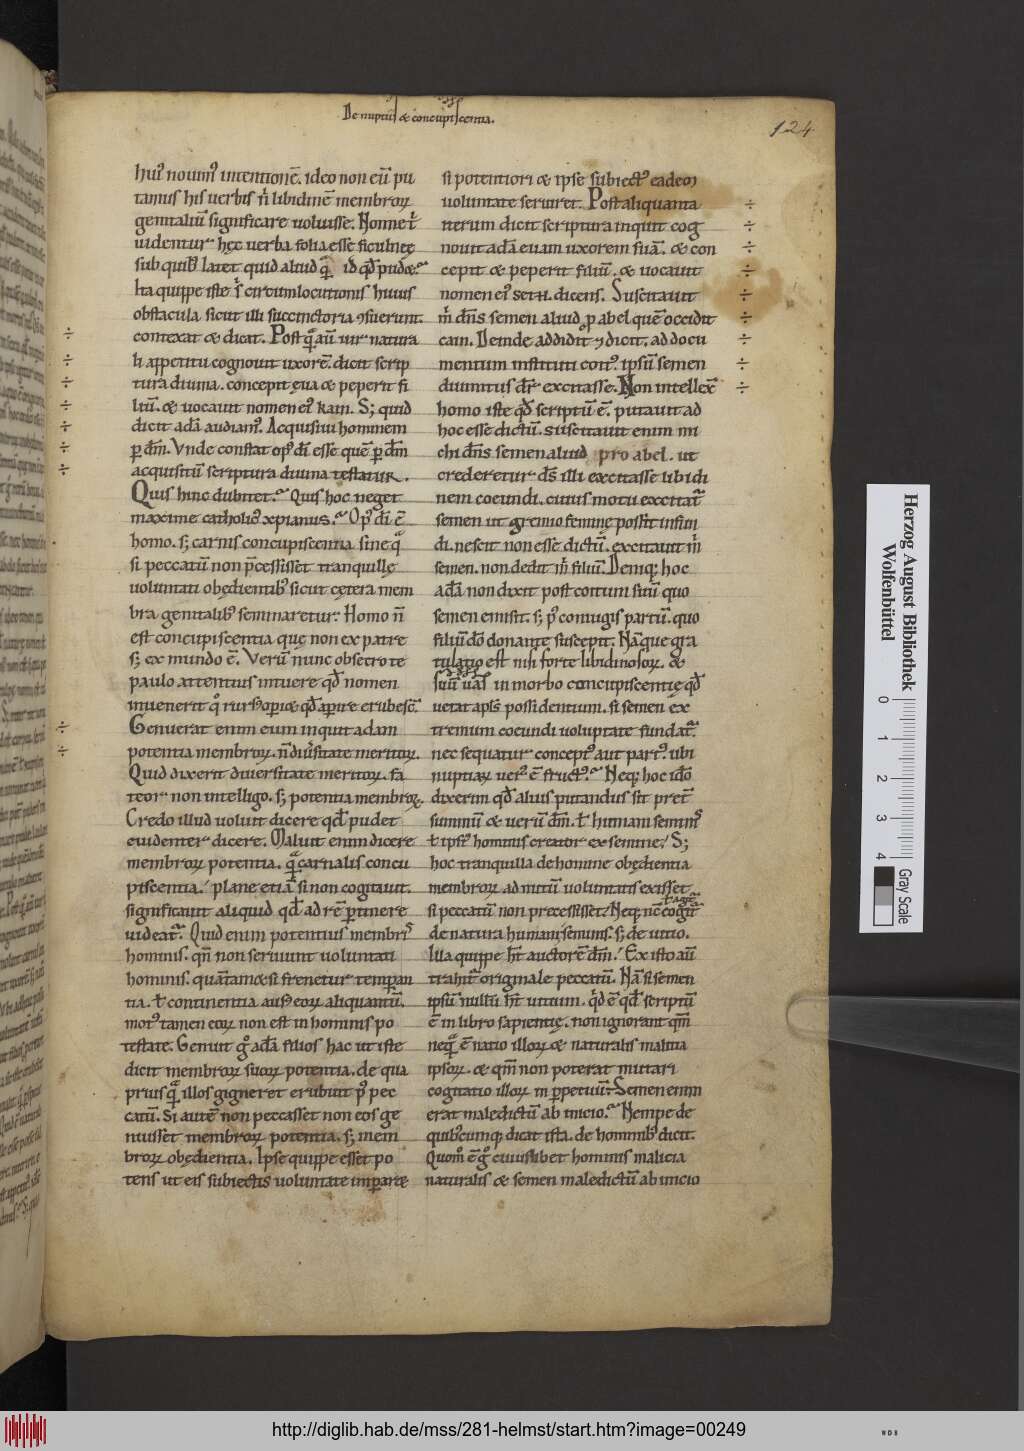 De nuptiis & concupiscentia.
124
hui᾽ nouim᾽ intentionē. ideo non eū pu
tamus his uerbis n̄ libidinē membroꝝ
genitaliū significare uoluisse. Nonne t̄
uidentur hęc uerba folia esse ficulneę
sub quib᾽ latet quid aliud q̄ id qđ pudet
Ita quippe iste circumlocutionis huius
obstacula sicut illi succinctoria ꝯsuerunt.
contexat & dicat. Postq̄ aū uir natura
li appetitu cognouit uxorē. dicit scrip
tura diuina. concepit eua & peperit fi
liū. & uocauit nomen ei᾽ kain. S; quid
dicit adā audiam᾽. Acquisiui hominem
ꝑ dm̄. Vnde constat op᾽ dī esse quē ꝑ dm̄
acquisitū scriptura diuina testatur.
Quis hinc dubitet. Quis hoc neget
maxime catholic᾽ xpianus. Op᾽ dī ē
homo. s; carnis concupiscentia sine q̄
si peccatū non p̄cessisset tranquillę
uoluntati obędientib᾽ sicut cętera mem
bra genitalib᾽ seminaretur. Homo n̄
est concupiscentia quę non ex patre
s; ex mundo ē. Verū nunc obsecro te
paulo attentius intuere qđ nomen
inuenerit
Genuerat enim eum inquit adam
potentia membroꝝ. n̄ diuersitate meritoꝝ.
Quid dixerit diuersitate meritoꝝ. fa
teor non intelligo. s; potentia membroꝝ.
Credo illud uoluit dicere qđ pudet
euidenter dicere. Maluit enim dicere
membroꝝ potentia. q̄ carnalis concu
piscentia. plane etiā si non cogitauit.
significauit aliquid qđ ad rē ꝑtinere
uideat᾽. Quid enim potentius membris
hominis. qm̄ non seruiunt uoluntati
hominis. quātam&si frenetur temperan
tia. t̄ continentia eoꝝ aliquantū.
mot᾽ tamen eoꝝ non est in hominis po
testate. Genuit g᾽ adā filios hac ut iste
dicit membroꝝ suoꝝ potentia. de qua
prius q̄ illos gigneret erubuit p᾽ pec
catū. Si autē non peccasset non eos ge
nuisset membroꝝ potentia. s; mem
broꝝ obędientia. Ipse quippe esset po
tens ut eis subiectis uoluntate imperaret
si potentiori & ipse subiect᾽ eadem
uoluntate seruiret. Post aliquanta
iterum dicit scriptura inquit cog
nouit adā euam uxorem suā. & con
cepit & peperit filiū. & uocauit
nomen ei᾽ seth. dicens. Suscitauit
m̄ dn̄s semen aliud ꝓ abel quē occidit
cain. Deinde addidit ꝯ dicit. ad docu
mentum instituti coit᾽. ipsū semen
diuinitus dr̄ excitasse. Non intellex̄
homo iste qđ scriptū ē. putauit ad
hoc esse dictū. suscitauit enim mi
chi dn̄s semen aliud pro abel. ut
crederetur ds̄ illi excitasse libidi
nem coeundi. cuius motu excitat᾽
semen ut gremio feminę possit infun
di. nescit non esse dictū. excitauit m̄
semen. non dedit m̄ filiū. Deniq; hoc
adā non dixit post coitum suū quo
semen emisit. s; p᾽ coniugis partū. quo
filiū dō donante suscepit. Nāque gra
tulatio est nisi forte libidinosoꝝ. &
suū uas in morbo concupiscentię qđ
uetat apls̄ possidentium. si semen ex
tremum coeundi uoluptate fundat᾽.
nec sequatur concept᾽ aut part᾽. ubi
nuptiaꝝ uer᾽ ē fruct᾽. Neq; hoc ideo
dixerim qđ alius putandus sit pret̄
summū & uerū dm̄. t̄ humani seminis
t̄ ipsi᾽ hominis creator ex semine. S;
hoc tranquilla de homine obędientia
membroꝝ ad nutū uoluntatis exisset
t̄ agit᾽
si peccatū non precessisset. Neq; nc̄ cogit᾽
de natura humani seminis. s; de uitio.
Illa quippe ht̄ auctorē dm̄. Ex isto aū
trahit᾽ originale peccatū. Nā si semen
ipsū nullū ht̄ uitium. quid ē qđ scriptū
ē in libro sapientię. non ignorans qm̄
neq̄ ē natio illoꝝ & naturalis malitia
ipsoꝝ. & qm̄ non poterat mutari
cogitatio illoꝝ in ꝑpetuū. Semen enim
erat maledictū ab inicio. Nempe de
quib᾽cumq; dicat ista. de hominib᾽ dicit.
Quom᾽ ē g᾽ cuiuslibet hominis malicia
naturalis & semen maledictū ab inicio
Herzog August Bibliothek
Wolfenbüttel
0 1 2 3 4
Gray Scale
http://diglib.hab.de/mss/281-helmst/start.htm?image=00249